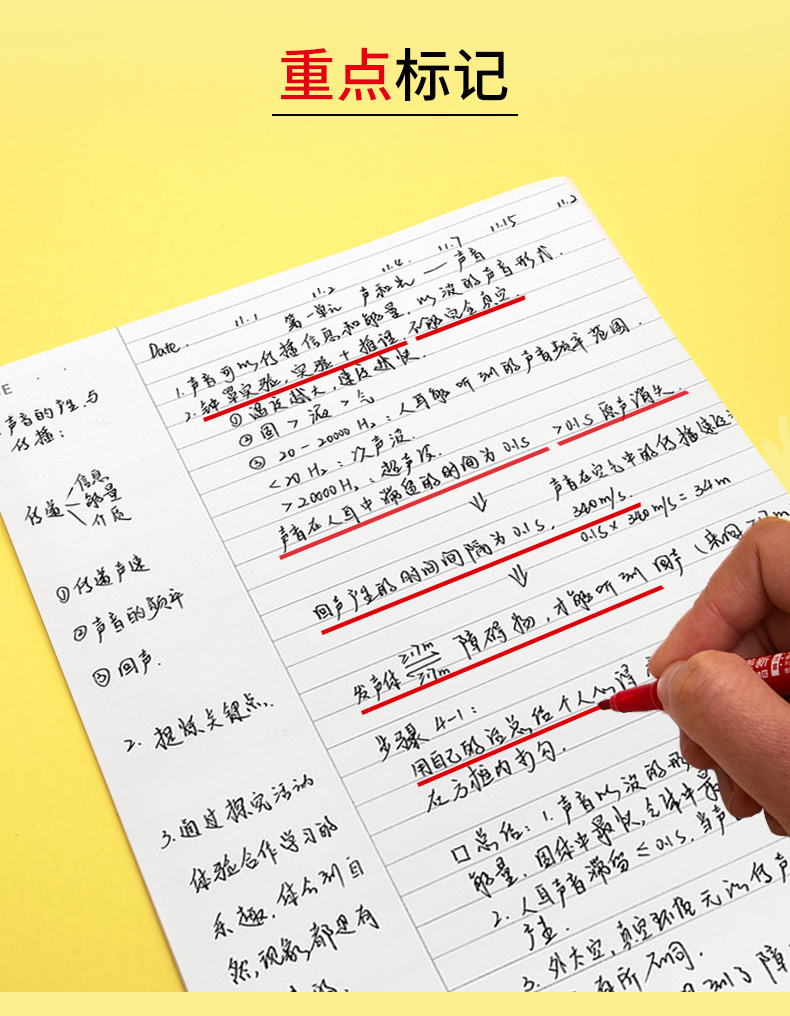 重点标记
11.1 11.2 11.4 11.7 11.15 11.2
Date.
第一单元 声和光 — 声音
1. 声音可以传播信息和能量, 以波的声音形式.
2. 钟罩实验, 实验+推理, 不能完全真空.
① 温度越大, 速度越快.
② 固 > 液 > 气
③ 20-20000Hz: 人耳能听到的声音频率范围.
<20Hz: 次声波.
>20000Hz: 超声波.
声音在人耳中滞留的时间为0.1s >0.1s 原声消失.
声音在空气中的传播速度
340m/s.
回声产生的时间间隔为0.1s, 0.1s×340m/s=34m
发声体 ≥17m ≥17m 障碍物, 才能听到回声 (来回
步骤 4-1:
用自己的话总结个人心得
在方框内打勾.
口总结: 1. 声音以波的形
能量, 固体中最快, 气体中最
2. 人耳声音滞留≤0.1s, 当声
产生.
3. 外太空, 真空环境无法传声
有所不同.
到了障
声音的产生与
传播:
传递 信息
能量
介质
① 传递声速
② 声音的频率
③ 回声.
2. 提炼关键点.
3. 通过探究活动
体验合作学习的
乐趣, 体会到自
然现象都是有